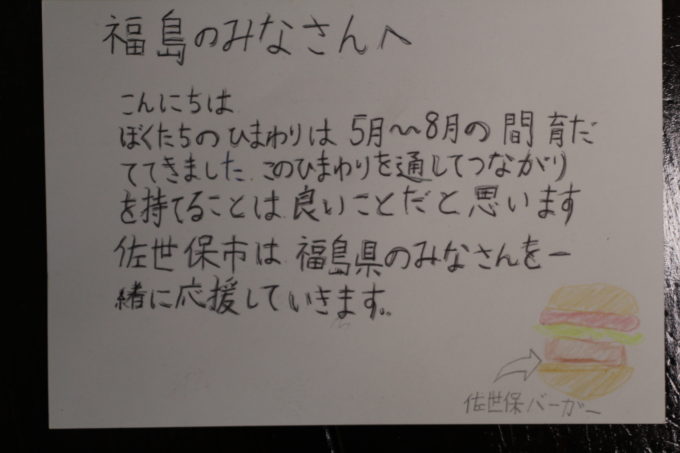 福島のみなさんへ
こんにちは
ぼくたちのひまわりは 5月〜8月の間育だ
ててきました。このひまわりを通してつながり
を持てることは良いことだと思います
佐世保市は福島県のみなさんを一
緒に応援していきます。
佐世保バーガー